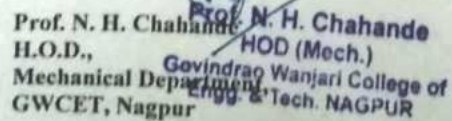 Prof. N. H. Chahande
H.O.D.,
Mechanical Department,
GWCET, Nagpur
Prof. N. H. Chahande
HOD (Mech.)
Govindrao Wanjari College of
Engg. & Tech. NAGPUR